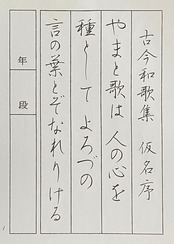 古今和歌集 仮名序
やまと歌は 人の心を
種として よろづの
言の葉とぞなれりける
年
段